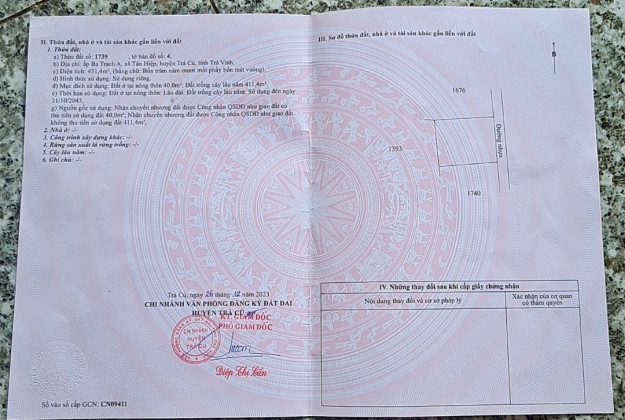 II. Thửa đất, nhà ở và tài sản khác gắn liền với đất
1. Thửa đất:
a) Thửa đất số: 1739 , tờ bản đồ số: 4,
b) Địa chỉ: ấp Ba Trạch A, xã Tân Hiệp, huyện Trà Cú, tỉnh Trà Vinh,
c) Diện tích: 451,4m², (bằng chữ: Bốn trăm năm mươi mốt phẩy bốn mét vuông),
d) Hình thức sử dụng: Sử dụng riêng,
đ) Mục đích sử dụng: Đất ở tại nông thôn 40,0m²; Đất trồng cây lâu năm 411,4m²,
e) Thời hạn sử dụng: Đất ở tại nông thôn: Lâu dài; Đất trồng cây lâu năm: Sử dụng đến ngày
31/10/2043,
g) Nguồn gốc sử dụng: Nhận chuyển nhượng đất được Công nhận QSDĐ như giao đất có
thu tiền sử dụng đất 40,0m²; Nhận chuyển nhượng đất được Công nhận QSDĐ như giao đất
không thu tiền sử dụng đất 411,4m²,
2. Nhà ở: -/-
3. Công trình xây dựng khác: -/-
4. Rừng sản xuất là rừng trồng: -/-
5. Cây lâu năm: -/-
6. Ghi chú: -/-
Trà Cú, ngày 26 tháng 12 năm 2023
CHI NHÁNH VĂN PHÒNG ĐĂNG KÝ ĐẤT ĐAI
HUYỆN TRÀ CÚ
KT. GIÁM ĐỐC
PHÓ GIÁM ĐỐC
CHI NHÁNH
HUYỆN
TRÀ CÚ
Diệp Chí Cần
Số vào sổ cấp GCN: CN09411
III. Sơ đồ thửa đất, nhà ở và tài sản khác gắn liền với đất
B
1676
Đường nhựa
1393
1740
IV. Những thay đổi sau khi cấp giấy chứng nhận
Nội dung thay đổi và cơ sở pháp lý
Xác nhận của cơ quan
có thẩm quyền